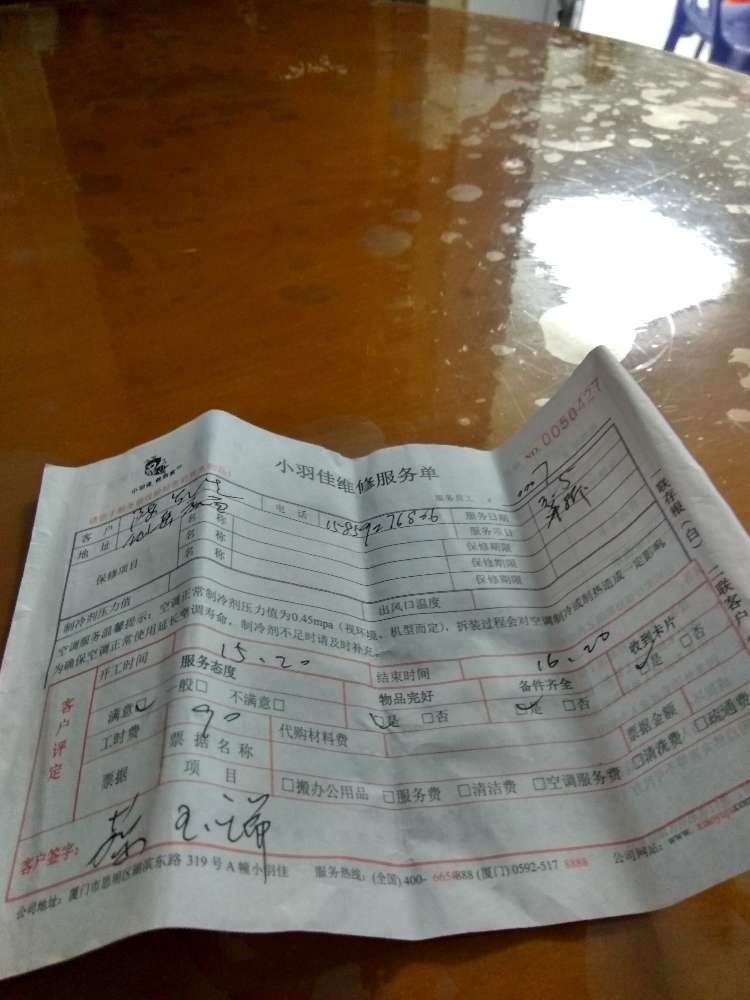 小羽佳维修服务单
NO.0050427
服务员工
客户 电话 服务日期
地址 名称 服务项目
保修项目 名称 保修期限
名称 保修期限
保修期限
制冷剂压力值 出风口温度
空调服务温馨提示：空调正常制冷剂压力值为0.45mpa（视环境、机型而定），拆装过程会对空调制冷或制热造成一定影响
为确保空调正常使用延长空调寿命，制冷剂不足时请及时补充。
一联存根（白） 二联客户
客户评定
开工时间 15.20 结束时间 16.20
服务态度 物品完好 备件齐全 收到卡片
满意□ 一般□ 不满意□ □是 □否 □是 □否 □是 □否
工时费 90 代购材料费 票据金额
票据 票据名称
项目 □搬办公用品 □服务费 □清洁费 □空调服务费 □清洗费 □疏通费
客户签字：
公司地址：厦门市思明区湖滨东路319号A幢小羽佳 服务热线：(全国)400-6654888 (厦门)0592-517 8888 公司网站：www.